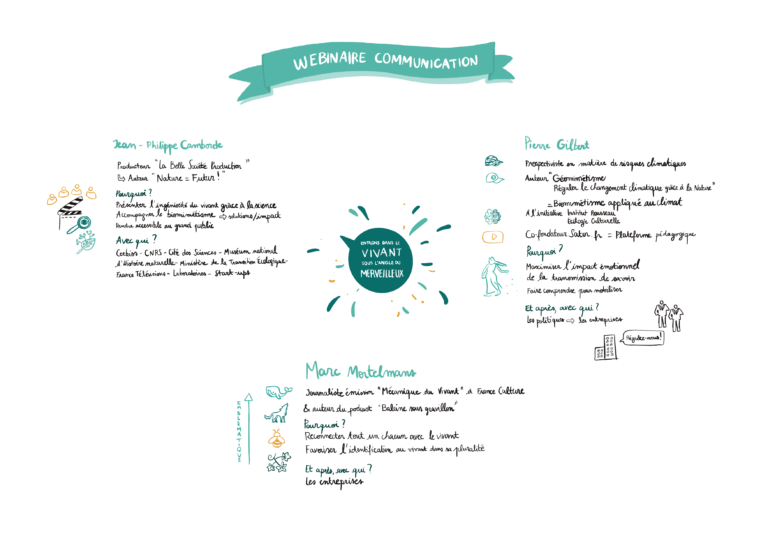 WEBINAIRE COMMUNICATION
Jean - Philippe Camborde
Producteur "La Belle Société Production"
↳ Auteur "Nature = Futur!"
Pourquoi ?
Présenter l'ingéniosité du vivant grâce à la science
Accompagner le biomimétisme ⇨ solutions/impact
Rendre accessible au grand public
Avec qui ?
Ceebios - CNRS - Cité des Sciences - Muséum national
d'Histoire naturelle - Ministère de la Transition Écologique -
France Télévisions - Laboratoires - Start-ups
ENTRONS DANS LE
VIVANT
SOUS L'ANGLE DU
MERVEILLEUX
Pierre Gilbert
Prospectiviste en matière de risques climatiques
Auteur "Géomimétisme
Réguler le changement climatique grâce à la Nature"
= Biomimétisme appliqué au climat
À l'initiative Institut Rousseau
Écologie Culturelle
Co-fondateur Sator.fr = Plateforme pédagogique
Pourquoi ?
Maximiser l'impact émotionnel
de la transmission de savoir
Faire comprendre pour mobiliser
Et après, avec qui ?
Les politiques ⇨ les entreprises
Régulez-nous!
Marc Mortelmans
Journaliste émission "Mécanique du Vivant" à France Culture
& auteur du podcast "Baleine sous gravillon"
Pourquoi ?
Reconnecter tout un chacun avec le vivant
Favoriser l'identification au vivant dans sa pluralité
Et après, avec qui ?
Les entreprises
EMBLÉMATIQUE